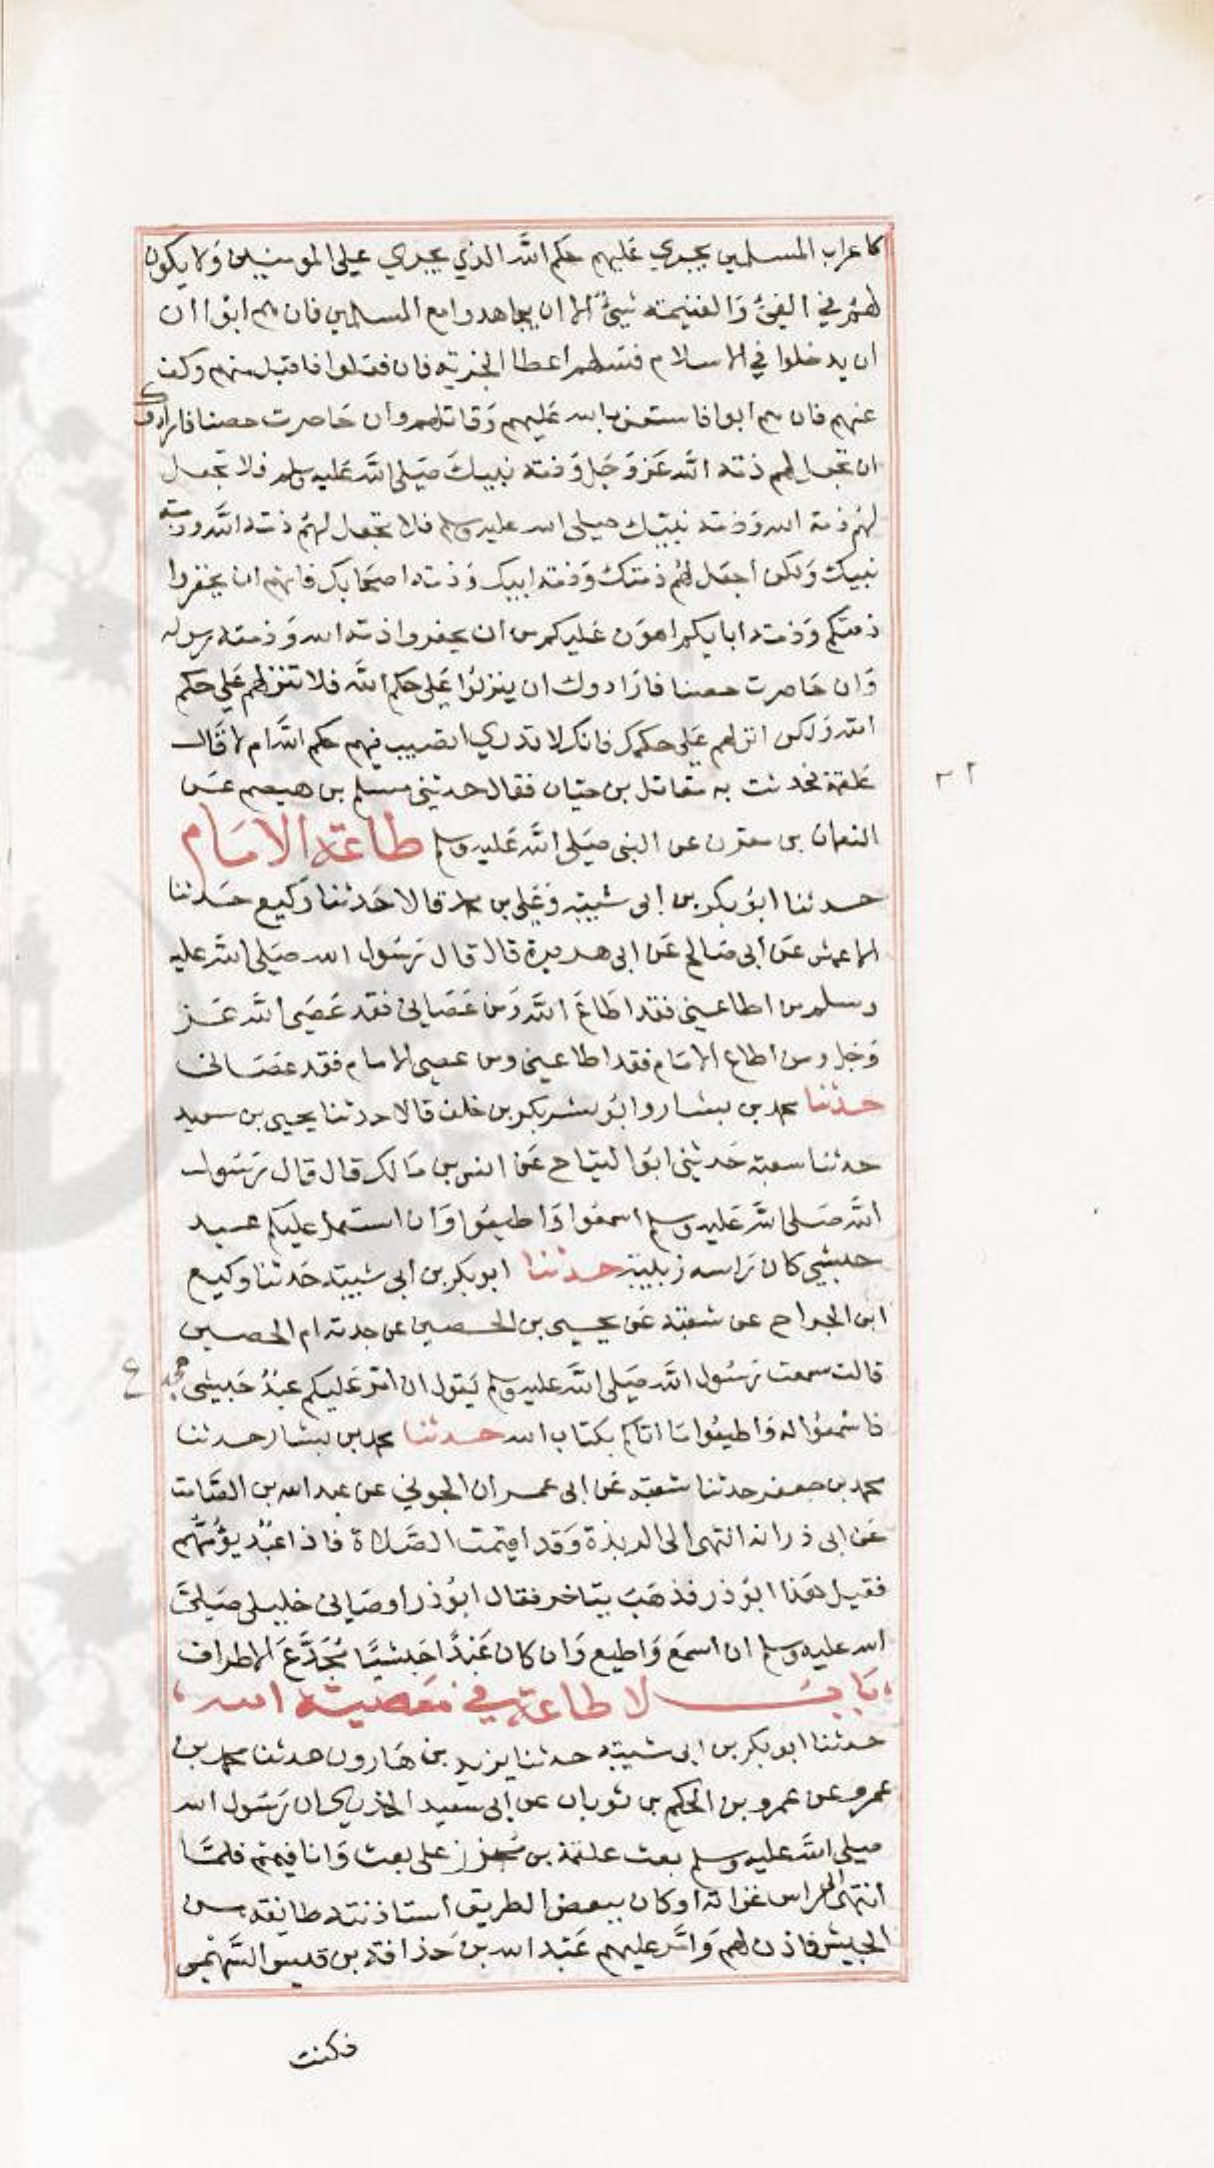 كاعراب المسلمين يجري عَليهم حكم اللَّه الذي يجري على المومنين وَلا يكون
لهُم في الفئ وَالغنيمة شئٌ الا ان يجاهدوا مع المسلمين فان هم ابوا ان
ان يدخلوا في الاسلام فسلهم اعطا الجزية فان فعلوا فاقبل منهم وكف
عنهم فان هم ابوا فاستعن بالله عَليهم وَقاتلهم وان حَاصرت حصنا فارادوك
ان تجعل لهم ذمة اللَّه عَزوَجَل وَذمة نبيكَ صَلى اللَّه عَليه وسلم فلا تجعل
لهُم ذمة الله وَذمة نبيّك صلى الله عليه وسلم فلا تجعل لهُم ذمة اللَّه وذمة
نبيك وَلكن اجعَل لهُم ذمتكَ وَذمة ابيك وَذمة اصحَابك فانهم ان يخفروا
ذمتكم وَذمة ابايكم اهوَن عَليكم من ان يخفروا ذمة الله وَذمة رسوله
وَان حَاصرت حصنا فارَادوك ان ينزلوُا عَلى حكم اللَّه فلا تنزلهم عَلى حكم
اللَّه وَلكن انزلهم عَلى حكمك فانك لا تدري اتصيب فيهم حكم اللَّه ام لا قَال
عَلقمة فحدثت به مقاتل بن حيَان فقال حدثنى مسلم بن هيصم عَن
النعمان بن مقرن عن النبى صَلى اللَّه عَليه وسلم طَاعَة الامَام
حدثنا ابوُ بكر بن ابى شيبة وَعَلى بن محمد قالا حَدثنا وَكيع حَدثنا
الاعمش عَن ابى صَالح عَن ابى هريرة قال قال رَسَول الله صَلى اللَّه عليه
وسلم من اطاعنى فقد اطَاعَ اللَّه وَمن عَصَانى فقد عَصَى اللَّه عَز
وَجَل ومن اطاع الامَام فقد اطاعنى ومن عصى الامام فقد عصَانى
حدثنا محمد بن بشار وابوُ بشر بكر بن خلف قالا حدثنا يحيى بن سعيد
حدثنا شعبة حَدثنى ابوَ التياح عَن انس بن مَالك قال قال رَسَول
اللَّه صَلى اللَّه عَليه وسلم اسمعُوا وَاطيعُوا وَان استعمل عليكم عبد
حبشي كان رَاسه زبيبة حدثنا ابو بكر بن ابى شيبة حَدثنا وكيع
ابن الجراح عن شعبة عَن يحيى بن الحصين عن جدته ام الحصين
قالت سمعت رَسُول اللَّه صَلى اللَّه عَليه وسلم يَقول ان امر عَليكم عبدُ حَبشى مجدع
فاسمعُوا له وَاطيعُوا مَا اقادكم بكتاب الله حدثنا محمد بن بشار حدثنا
محمد بن جعفر حدثنا شعبة عَن ابى عمران الجوني عن عبد الله بن الصَّامت
عَن ابى ذر انه انتهى الى الربذة وَقد اقيمت الصَّلاة فاذا عَبْد يؤُمُّهُم
فقيل هَذا ابوُ ذر فذهَبَ يتاخر فقال ابوُ ذر اوصَانى خليلى صَلى
الله عليه وسلم ان اسمَع وَاطيع وَان كان عَبْدًا حَبشيًا مُجَدَّعَ الاطراف
بَابُ لا طاعَة في مَعصية الله
حدثنا ابو بكر بن ابى شيبة حدثنا يزيد بن هَارون حدثنا محمد بن
عمرو عن عمرو بن الحكم بن ثوبان عن ابى سعيد الخدري ان رَسَول الله
صلى اللَّه عليه وسلم بعث علقمة بن مجزز على بعث وَانا فيهم فلمَّا
انتهى الى راس غزاته او كان ببعض الطريق استاذنته طايفة من
الجيش فاذن لهم وَامّر عليهم عَبْد الله بن حَذافة بن قيس السَّهْمى
فكنت